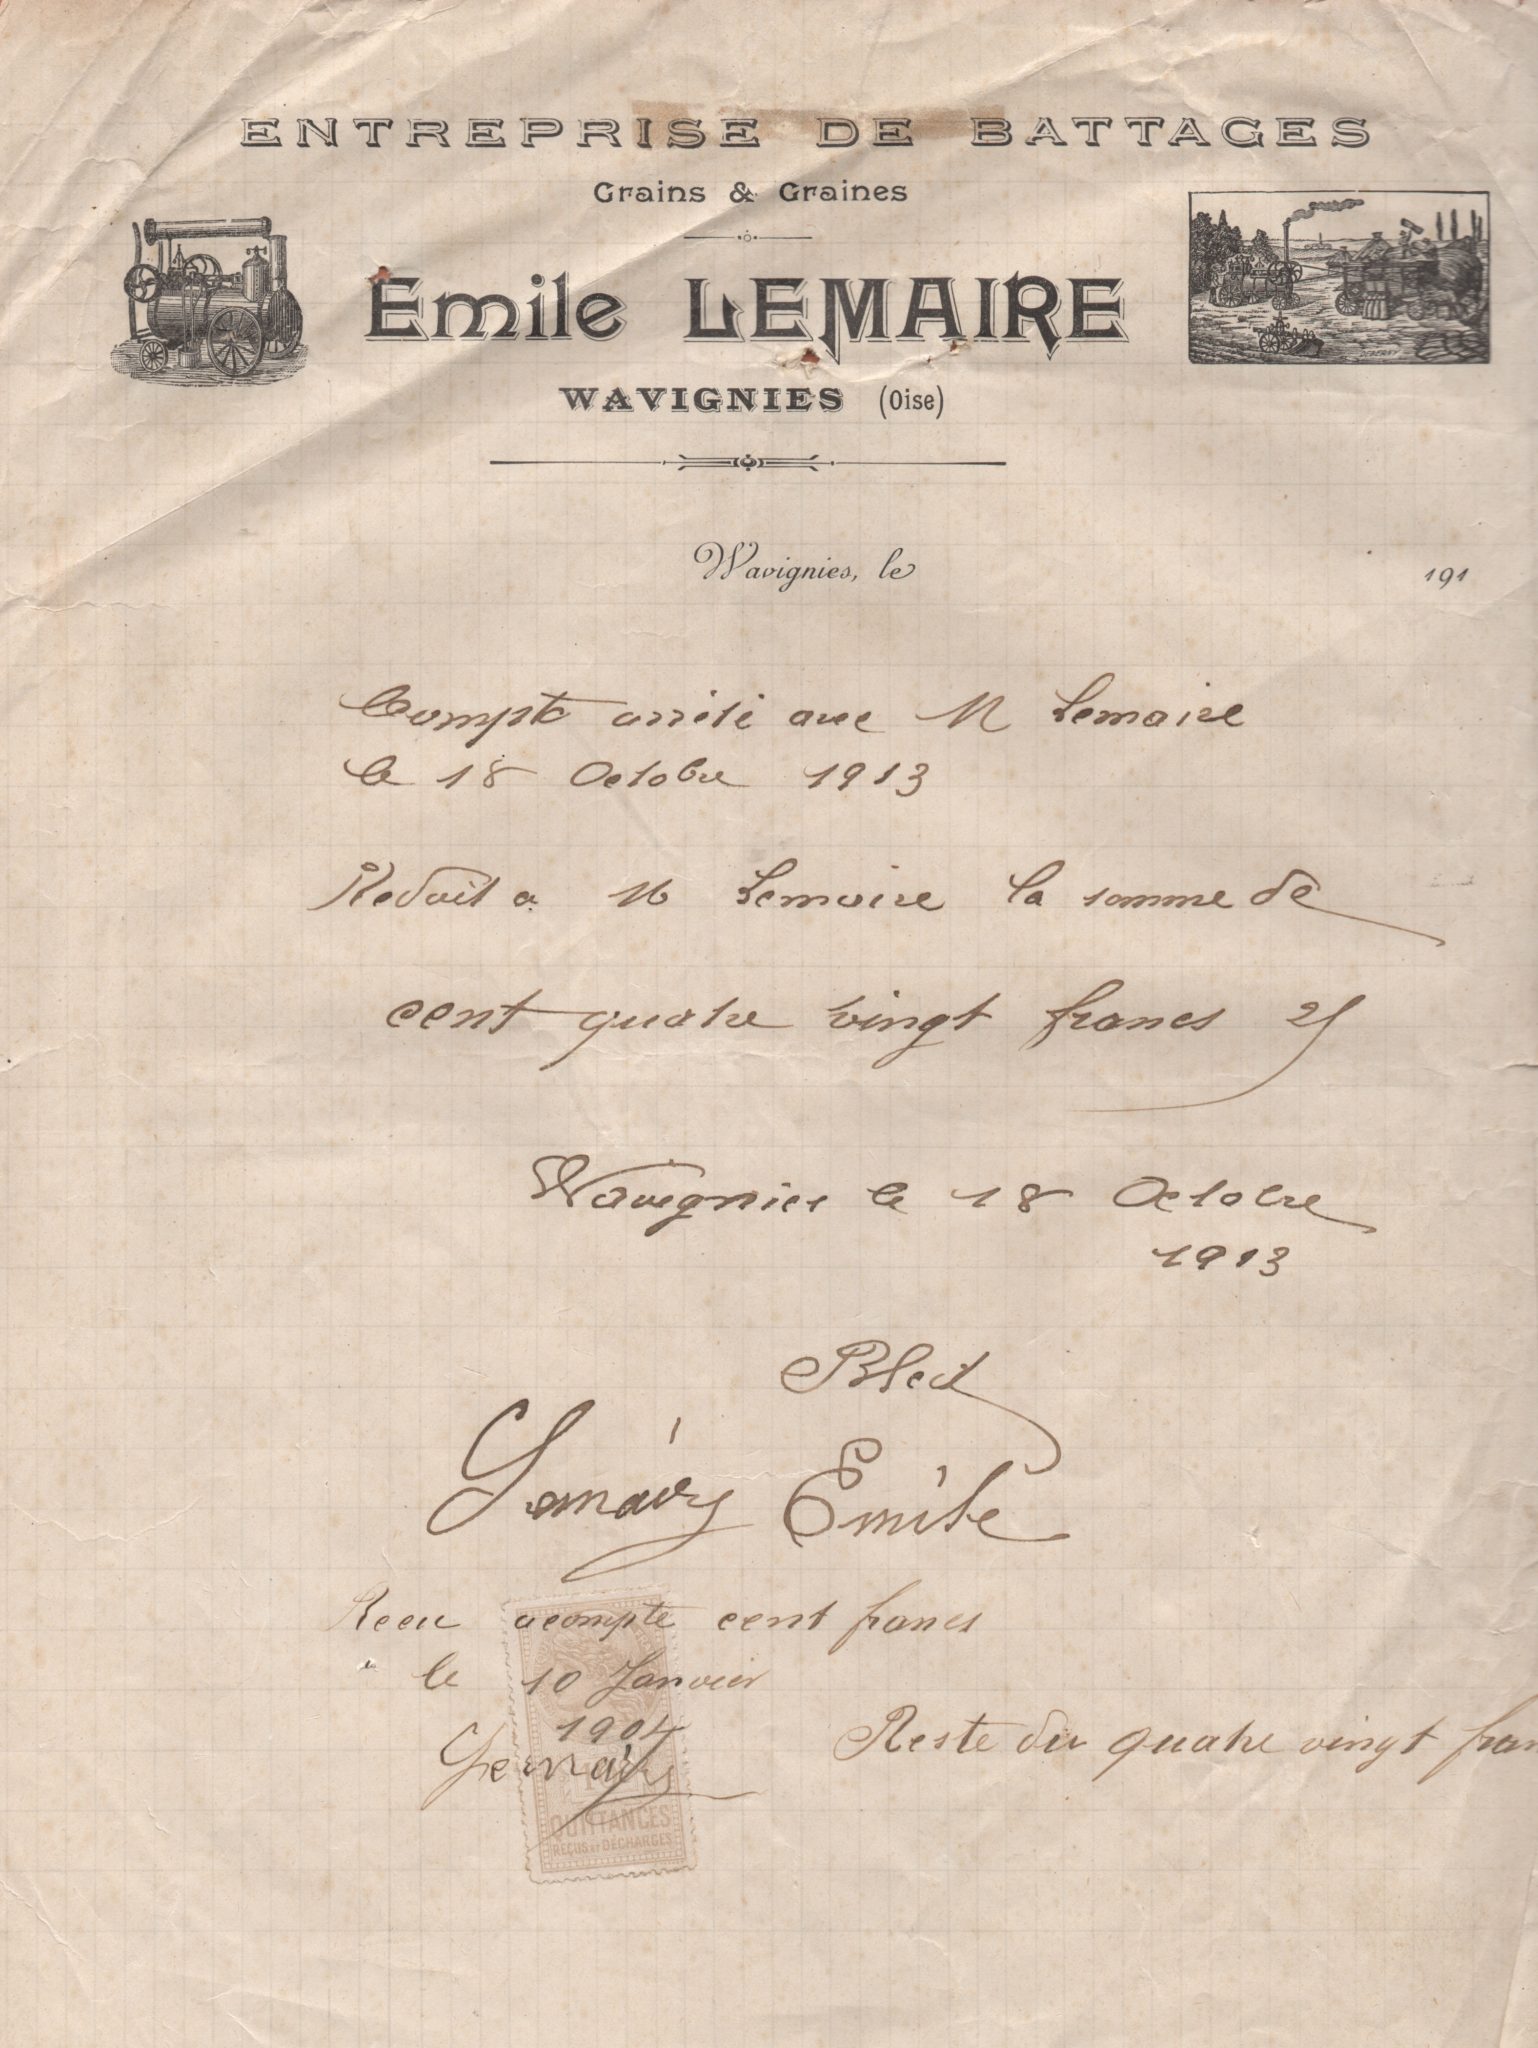 ENTREPRISE DE BATTAGES
Grains & Graines
Emile LEMAIRE
WAVIGNIES (Oise)
Wavignies, le 191
Compte arrêté avec M Lemaire
le 18 Octobre 1913
Redoit a M Lemaire la somme de
cent quatre vingt francs 25
Wavignies le 18 Octobre
1913
Bled
Lemaire Emile
Recu acompte cent francs
le 10 Janvier
1904
Reste du quatre vingt fran
Lemaire
QUITTANCES
REÇUS ET DÉCHARGES